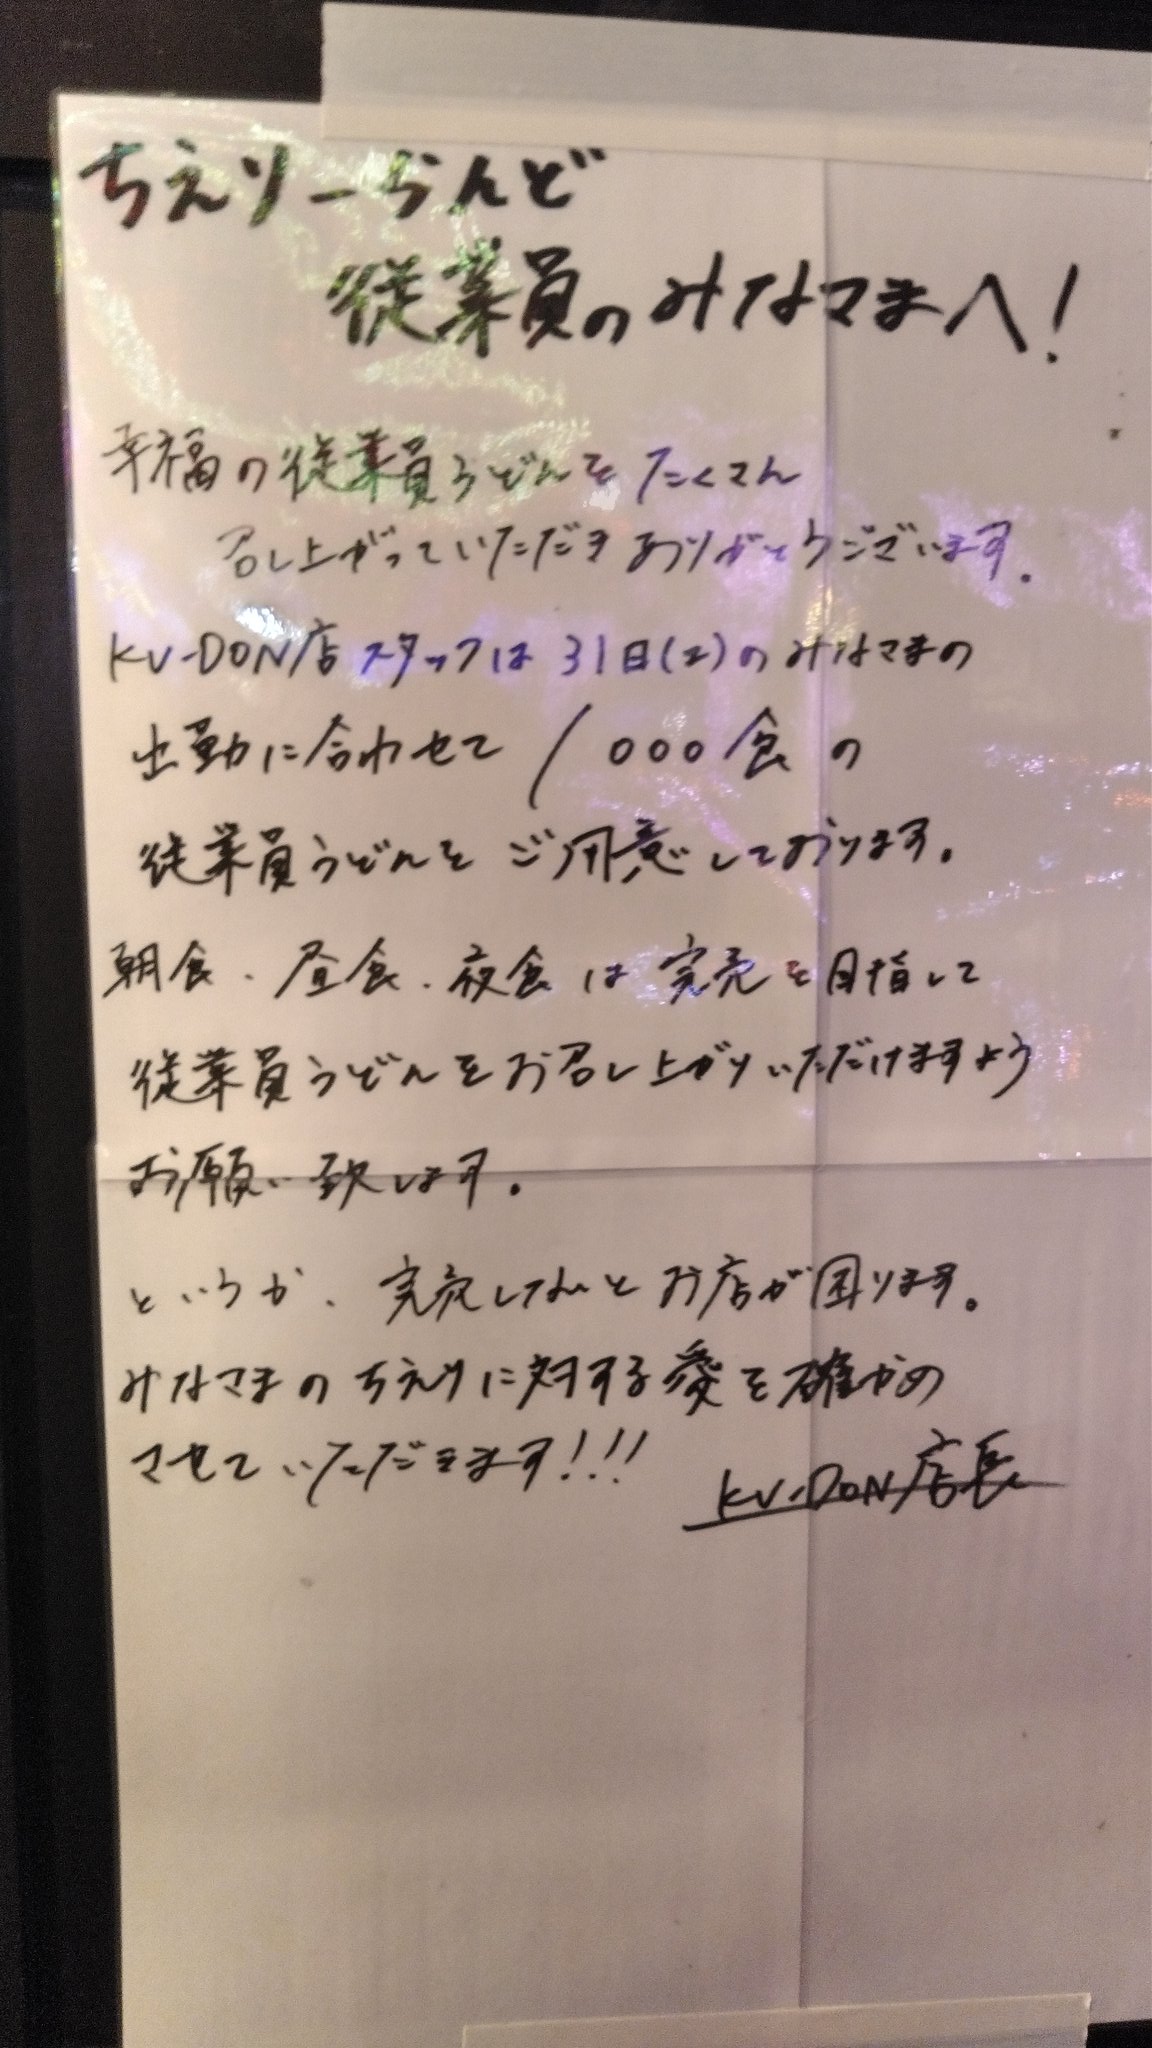 ちえりーらんど
従業員のみなさまへ!
幸福の従業員うどんをたくさん
召し上がっていただきありがとうございます.
KU-DON店スタッフは31日(土)のみなさまの
出勤に合わせて1000食の
従業員うどんをご用意しております。
朝食、昼食、夜食は完売を目指して
従業員うどんをお召し上がりいただけますよう
お願い致します。
というか、完売しないとお店が困ります。
みなさまのちえりに対する愛を確かめ
させていただきます!!!
KU-DON店長